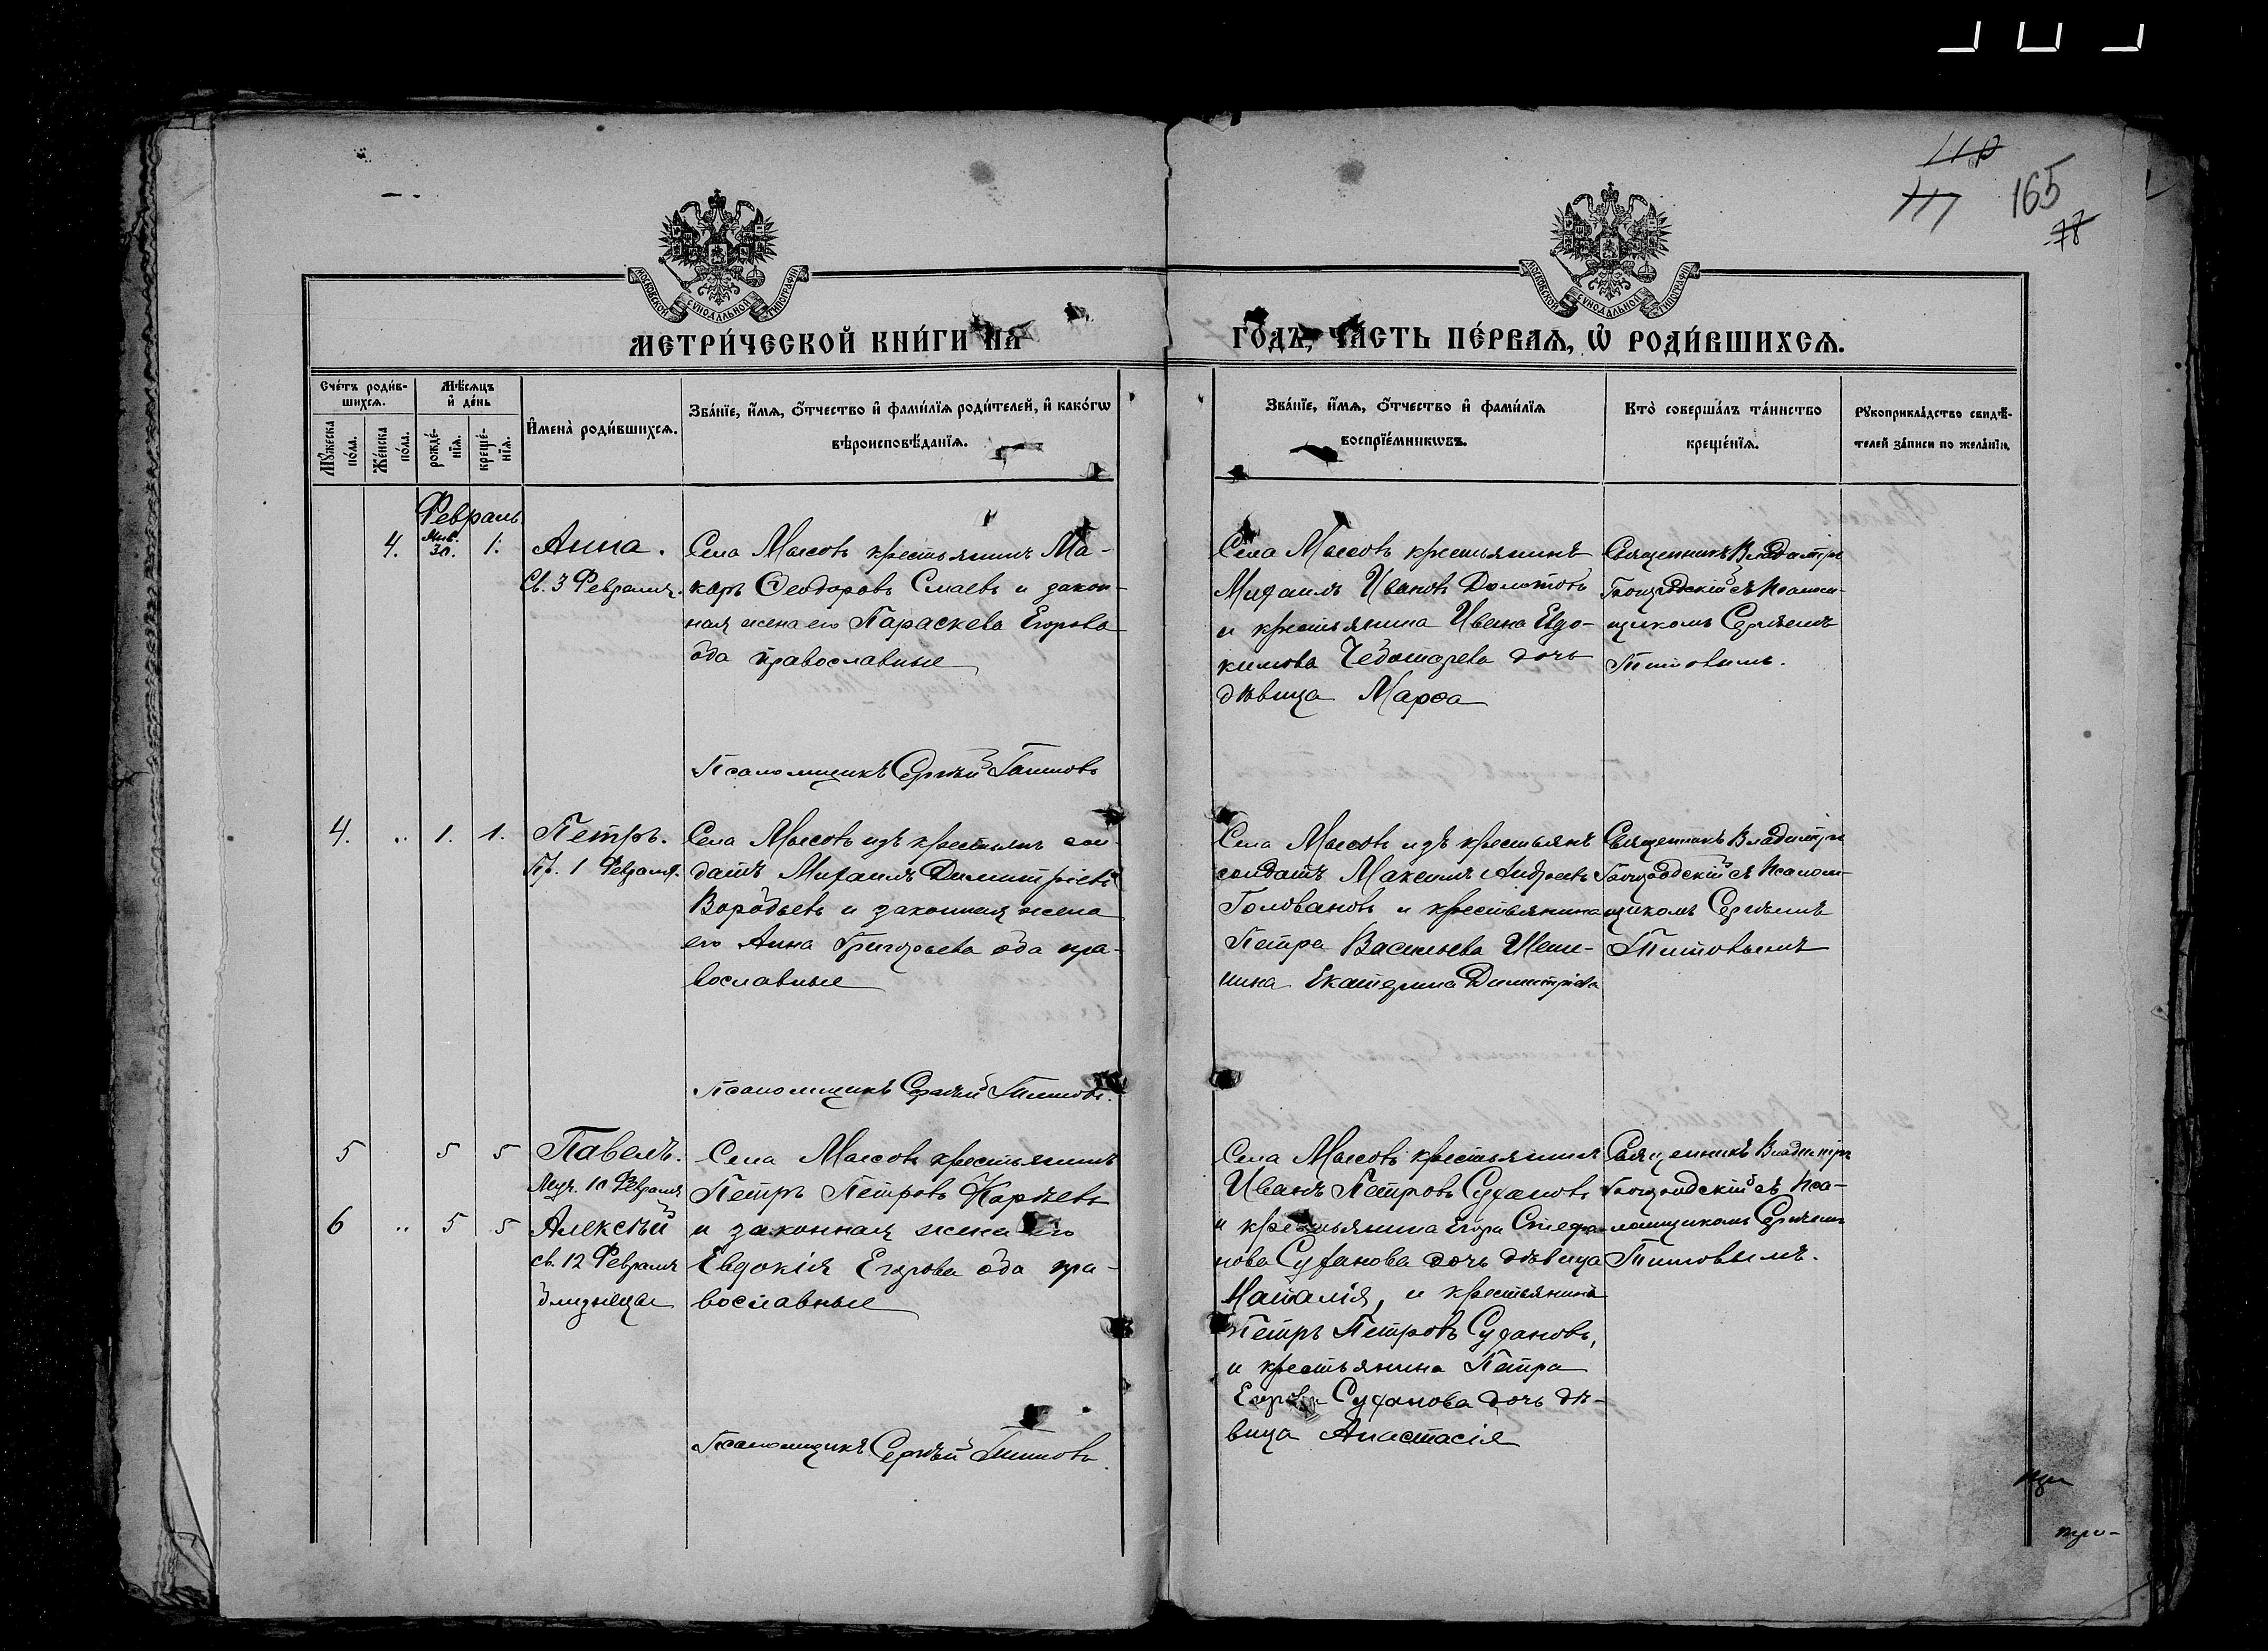 110
111
165
78
МОСКОВСКОЙ СѴНОДАЛЬНОЙ ТИПОГРАФІИ
МОСКОВСКОЙ СѴНОДАЛЬНОЙ ТИПОГРАФІИ
МЕТРИ́ЧЕСКОЙ КНИ́ГИ НА
ГОДЪ, ЧАСТЬ ПЕ́РВАѦ, Ѡ РОДИ́ВШИХСѦ.
Сче́тъ роди́в-
шихсѧ.
Мѣ́сѧцъ
и҆ де́нь
Мꙋ́жеска
по́ла.
Же́нска
по́ла.
рожде́-
нїѧ.
креще́-
нїѧ.
И҆мена̀ роди́вшихсѧ.
Зва́нїе, и҆́мѧ, ѻ҆́тчество и҆ фами́лїѧ роди́телей, и҆ како́гѡ
вѣроисповѣ́данїѧ.
Зва́нїе, и҆́мѧ, ѻ҆́тчество и҆ фами́лїѧ
воспрїе́мникѡвъ.
Кто̀ соверша́лъ та́инство
креще́нїѧ.
Рꙋкоприкла́дство свидѣ́-
телей за́писи по жела́нїю.
Февраль
4. Янв. 30. 1. Анна.
Св. 3 Февраля.
Села Мысовъ крестьянинъ Ма-
каръ Ѳеодоровъ и закон-
ная жена его Параскева Егорова
оба православные
Псаломщикъ Сергѣй Титовъ
Села Мысовъ крестьянинъ
Михаилъ Ивановъ Долотовъ
и крестьянина Ивана Евдо-
кимова Чеботарева дочь
дѣвица Марѳа
Священникъ Владиміръ
Богородскій съ псалом-
щикомъ Сергѣемъ
Титовымъ.
4. .. 1. 1. Петръ.
Пр. 1 Февраля.
Села Мысовъ изъ крестьянъ сол-
датъ Михаилъ Димитріевъ
Воробьевъ и законная жена
его Анна Григорьева оба пра-
вославные
Псаломщикъ Сергѣй Титовъ.
Села Мысовъ изъ крестьянъ
солдатъ Максимъ Андреевъ
Головановъ и крестьянина
Петра Васильева
Екатерина Димитріева
Священникъ Владиміръ
Богородскій съ псалом-
щикомъ Сергѣемъ
Титовымъ
5 5 5 Павелъ.
Муч. 10 Февраля
6 .. 5 5 Алексѣй
св. 12 Февраля
близнецы
Села Мысовъ крестьянинъ
Петръ Петровъ Карѣевъ
и законная жена его
Евдокія Егорова оба пра-
вославные
Псаломщикъ Сергѣй Титовъ.
Села Мысовъ крестьянинъ
Иванъ Петровъ Сухановъ
и крестьянина Егора Стефа-
нова Суханова дочь дѣвица
Наталія, и крестьянинъ
Петръ Петровъ Сухановъ,
и крестьянина Петра
Егорова Суханова дочь дѣ-
вица Анастасія
Священникъ Владиміръ
Богородскій съ пса-
ломщикомъ Сергѣемъ
Титовымъ.